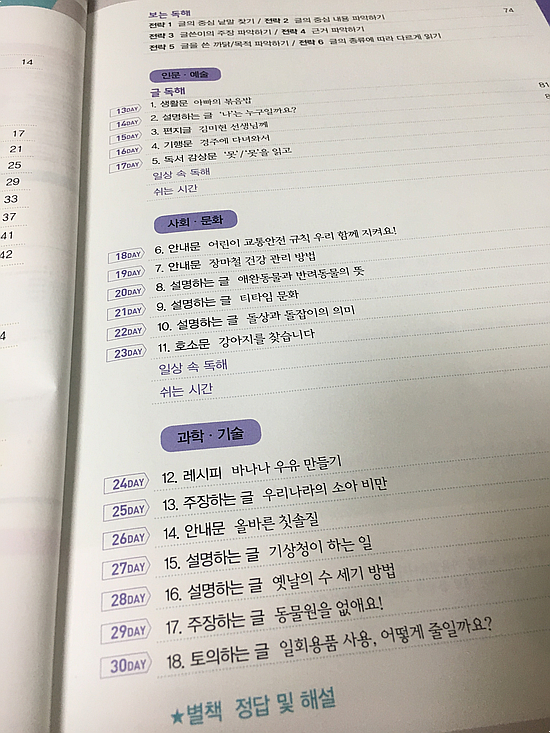 14
17
21
25
29
33
37
41
42
4
보는 독해
74
전략 1 글의 중심 낱말 찾기 / 전략 2 글의 중심 내용 파악하기
전략 3 글쓴이의 주장 파악하기 / 전략 4 근거 파악하기
전략 5 글을 쓴 까닭/목적 파악하기 / 전략 6 글의 종류에 따라 다르게 읽기
인문 · 예술
글 독해
13DAY 1. 생활문 아빠의 볶음밥 81
14DAY 2. 설명하는 글 '나'는 누구일까요?
15DAY 3. 편지글 김미현 선생님께
16DAY 4. 기행문 경주에 다녀와서
17DAY 5. 독서 감상문 '못'/'못'을 읽고
일상 속 독해
쉬는 시간
사회 · 문화
18DAY 6. 안내문 어린이 교통안전 규칙 우리 함께 지켜요!
19DAY 7. 안내문 장마철 건강 관리 방법
20DAY 8. 설명하는 글 애완동물과 반려동물의 뜻
21DAY 9. 설명하는 글 티타임 문화
22DAY 10. 설명하는 글 돌상과 돌잡이의 의미
23DAY 11. 호소문 강아지를 찾습니다
일상 속 독해
쉬는 시간
과학 · 기술
24DAY 12. 레시피 바나나 우유 만들기
25DAY 13. 주장하는 글 우리나라의 소아 비만
26DAY 14. 안내문 올바른 칫솔질
27DAY 15. 설명하는 글 기상청이 하는 일
28DAY 16. 설명하는 글 옛날의 수 세기 방법
29DAY 17. 주장하는 글 동물원을 없애요!
30DAY 18. 토의하는 글 일회용품 사용, 어떻게 줄일까요?
★별책 정답 및 해설